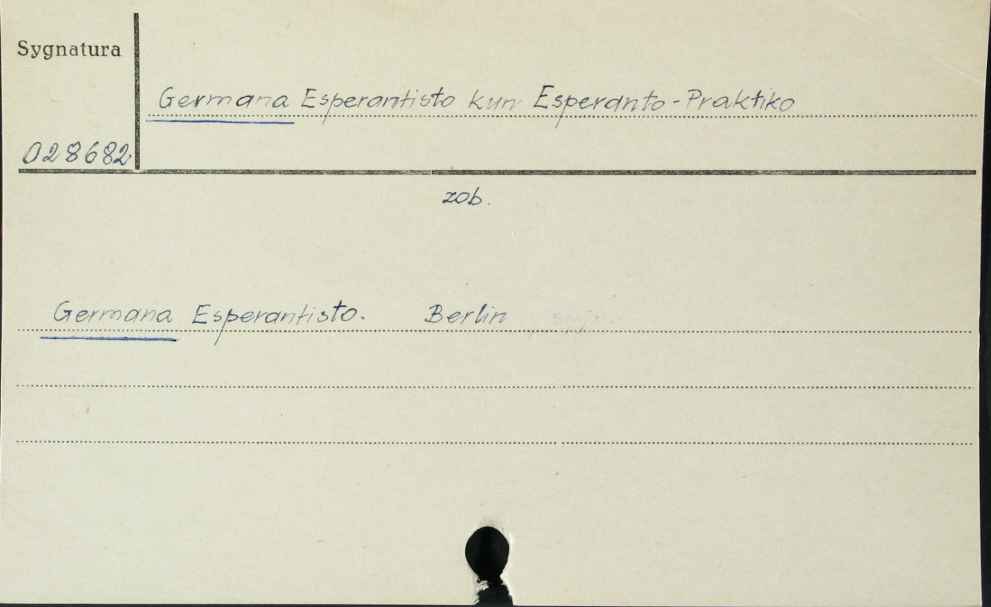 Sygnatura
Germana Esperantisto kun Esperanto-Praktiko
028682
zob.
Germana Esperantisto. Berlin